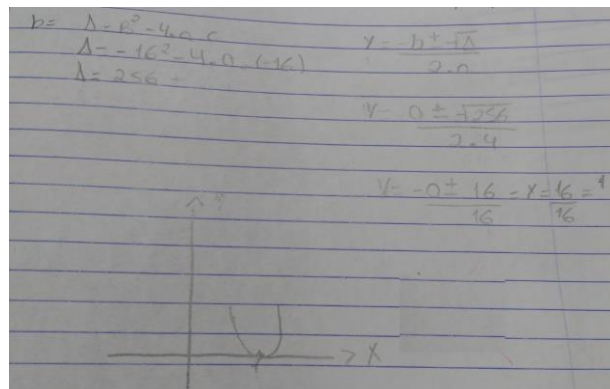 b= Δ = b² - 4.a.c
Δ = -16² - 4.0.(-16)
Δ = 256
X = -b ± √Δ
2.a
X = 0 ± √256
2.4
X = -0 ± 16 = X = 16 = 1
16 16
Y
X
1